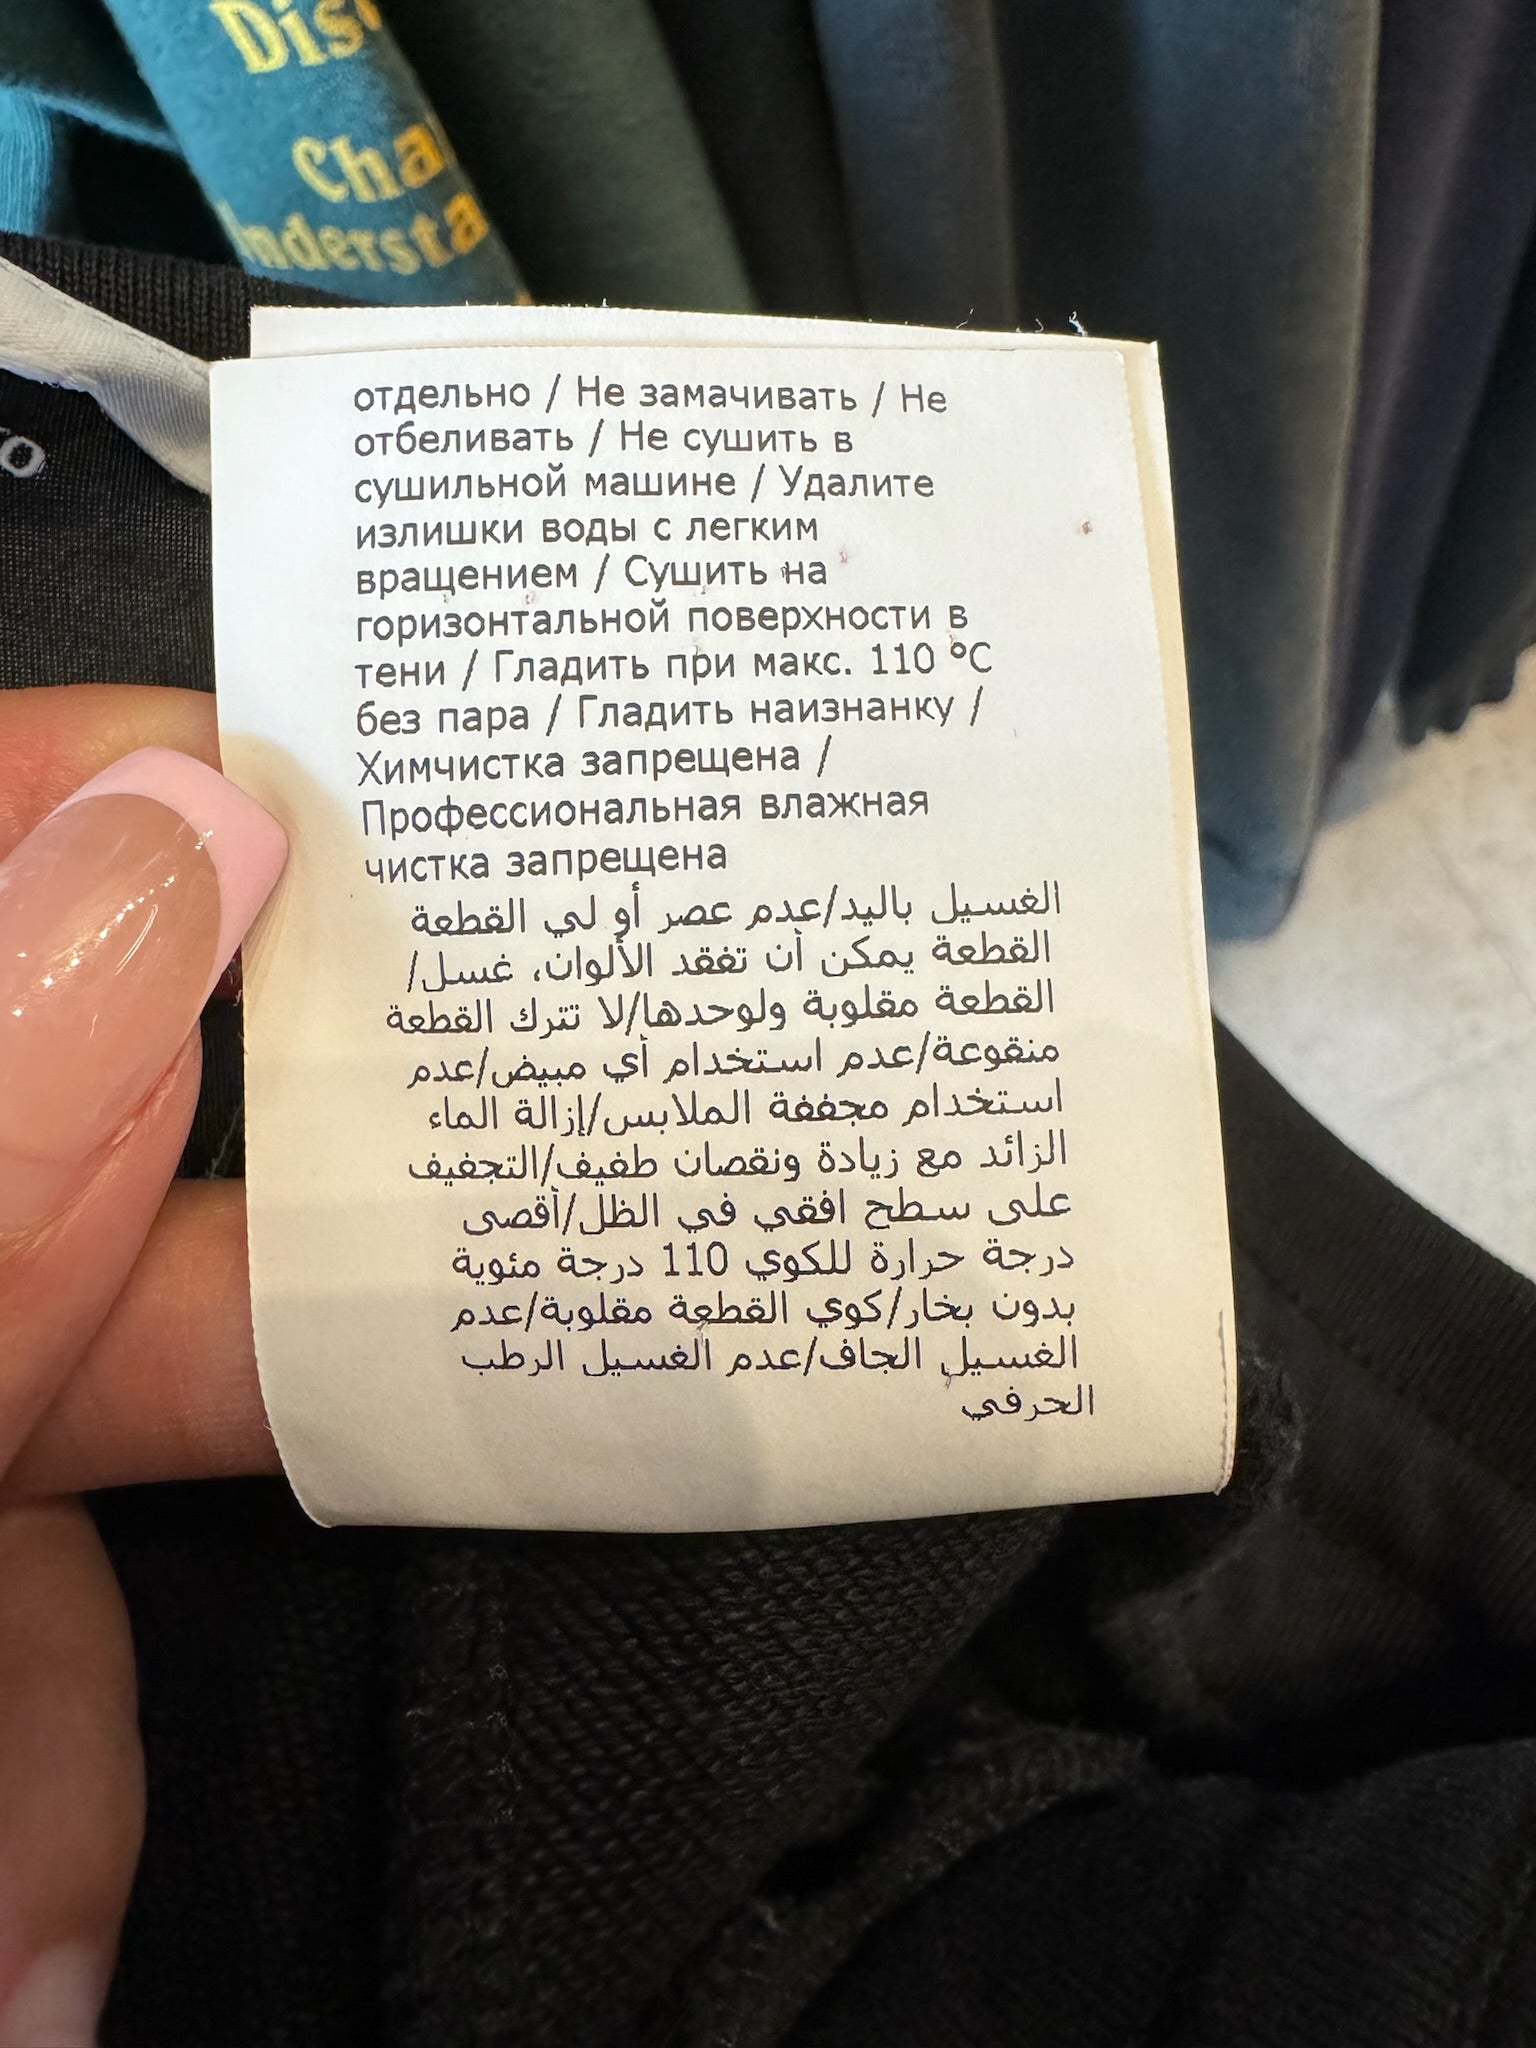 Dis
Cha
Understa
TO
отдельно / Не замачивать / Не
отбеливать / Не сушить в
сушильной машине / Удалите
излишки воды с легким
вращением / Сушить на
горизонтальной поверхности в
тени / Гладить при макс. 110 °C
без пара / Гладить наизнанку /
Химчистка запрещена /
Профессиональная влажная
чистка запрещена
الغسيل باليد/عدم عصر أو لي القطعة
القطعة يمكن أن تفقد الألوان، غسل/
القطعة مقلوبة ولوحدها/لا تترك القطعة
منقوعة/عدم استخدام أي مبيض/عدم
استخدام مجففة الملابس/إزالة الماء
الزائد مع زيادة ونقصان طفيف/التجفيف
على سطح افقي في الظل/أقصى
درجة حرارة للكوي 110 درجة مئوية
بدون بخار/كوي القطعة مقلوبة/عدم
الغسيل الجاف/عدم الغسيل الرطب
الحرفي